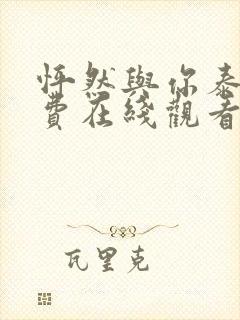 怦然與你泰
費在綫觀看
瓦里克